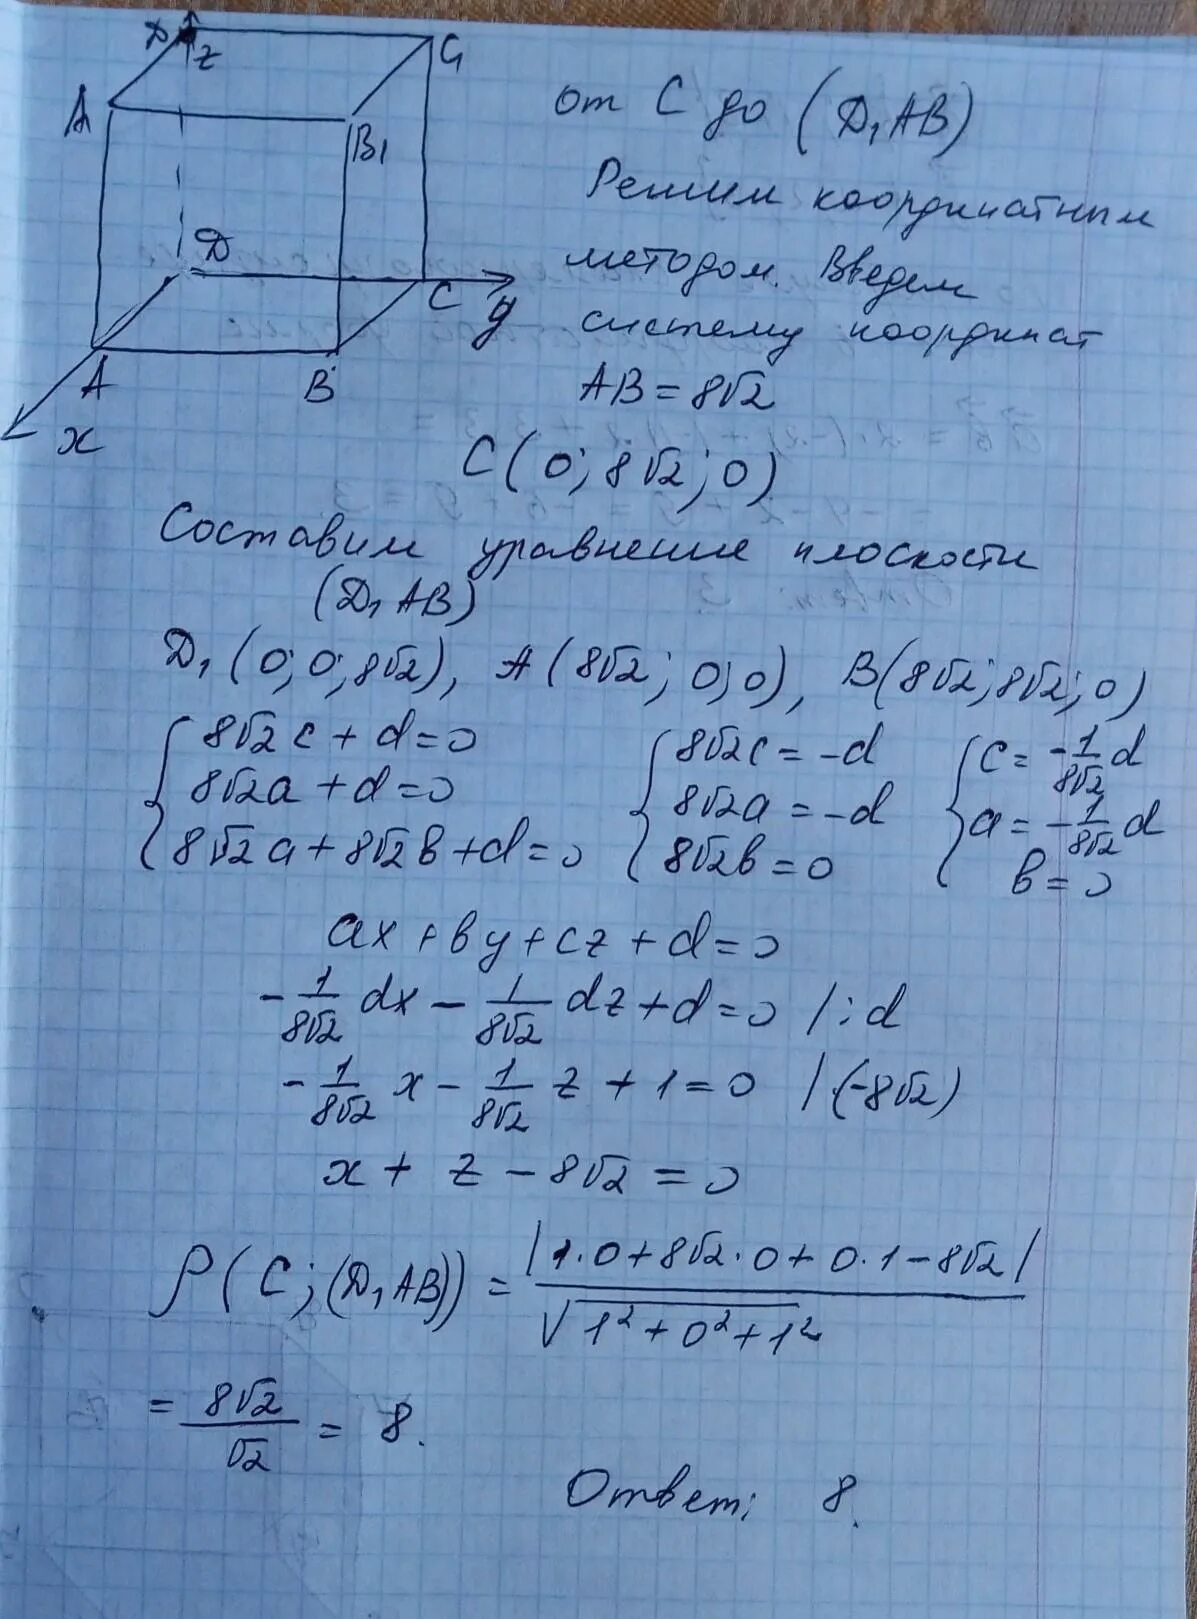 D1 z C1
A B1
От C до (D1AB)
Решим координатным
методом. Введем
систему координат
D C y
A B
x
AB = 8√2
C(0; 8√2; 0)
Составим уравнение плоскости
(D1AB)
D1(0; 0; 8√2), A(8√2; 0; 0), B(8√2; 8√2; 0)
{8√2c + d = 0 {8√2c = -d {c = -1/(8√2) d
8√2a + d = 0 8√2a = -d a = -1/(8√2) d
8√2a + 8√2b + d = 0 8√2b = 0 b = 0
ax + by + cz + d = 0
-1/(8√2) dx - 1/(8√2) dz + d = 0 | : d
-1/(8√2) x - 1/(8√2) z + 1 = 0 | · (-8√2)
x + z - 8√2 = 0
ρ(C; (D1AB)) = |1·0 + 8√2·0 + 0·1 - 8√2| / √(1² + 0² + 1²)
= 8√2/√2 = 8.
Ответ: 8.